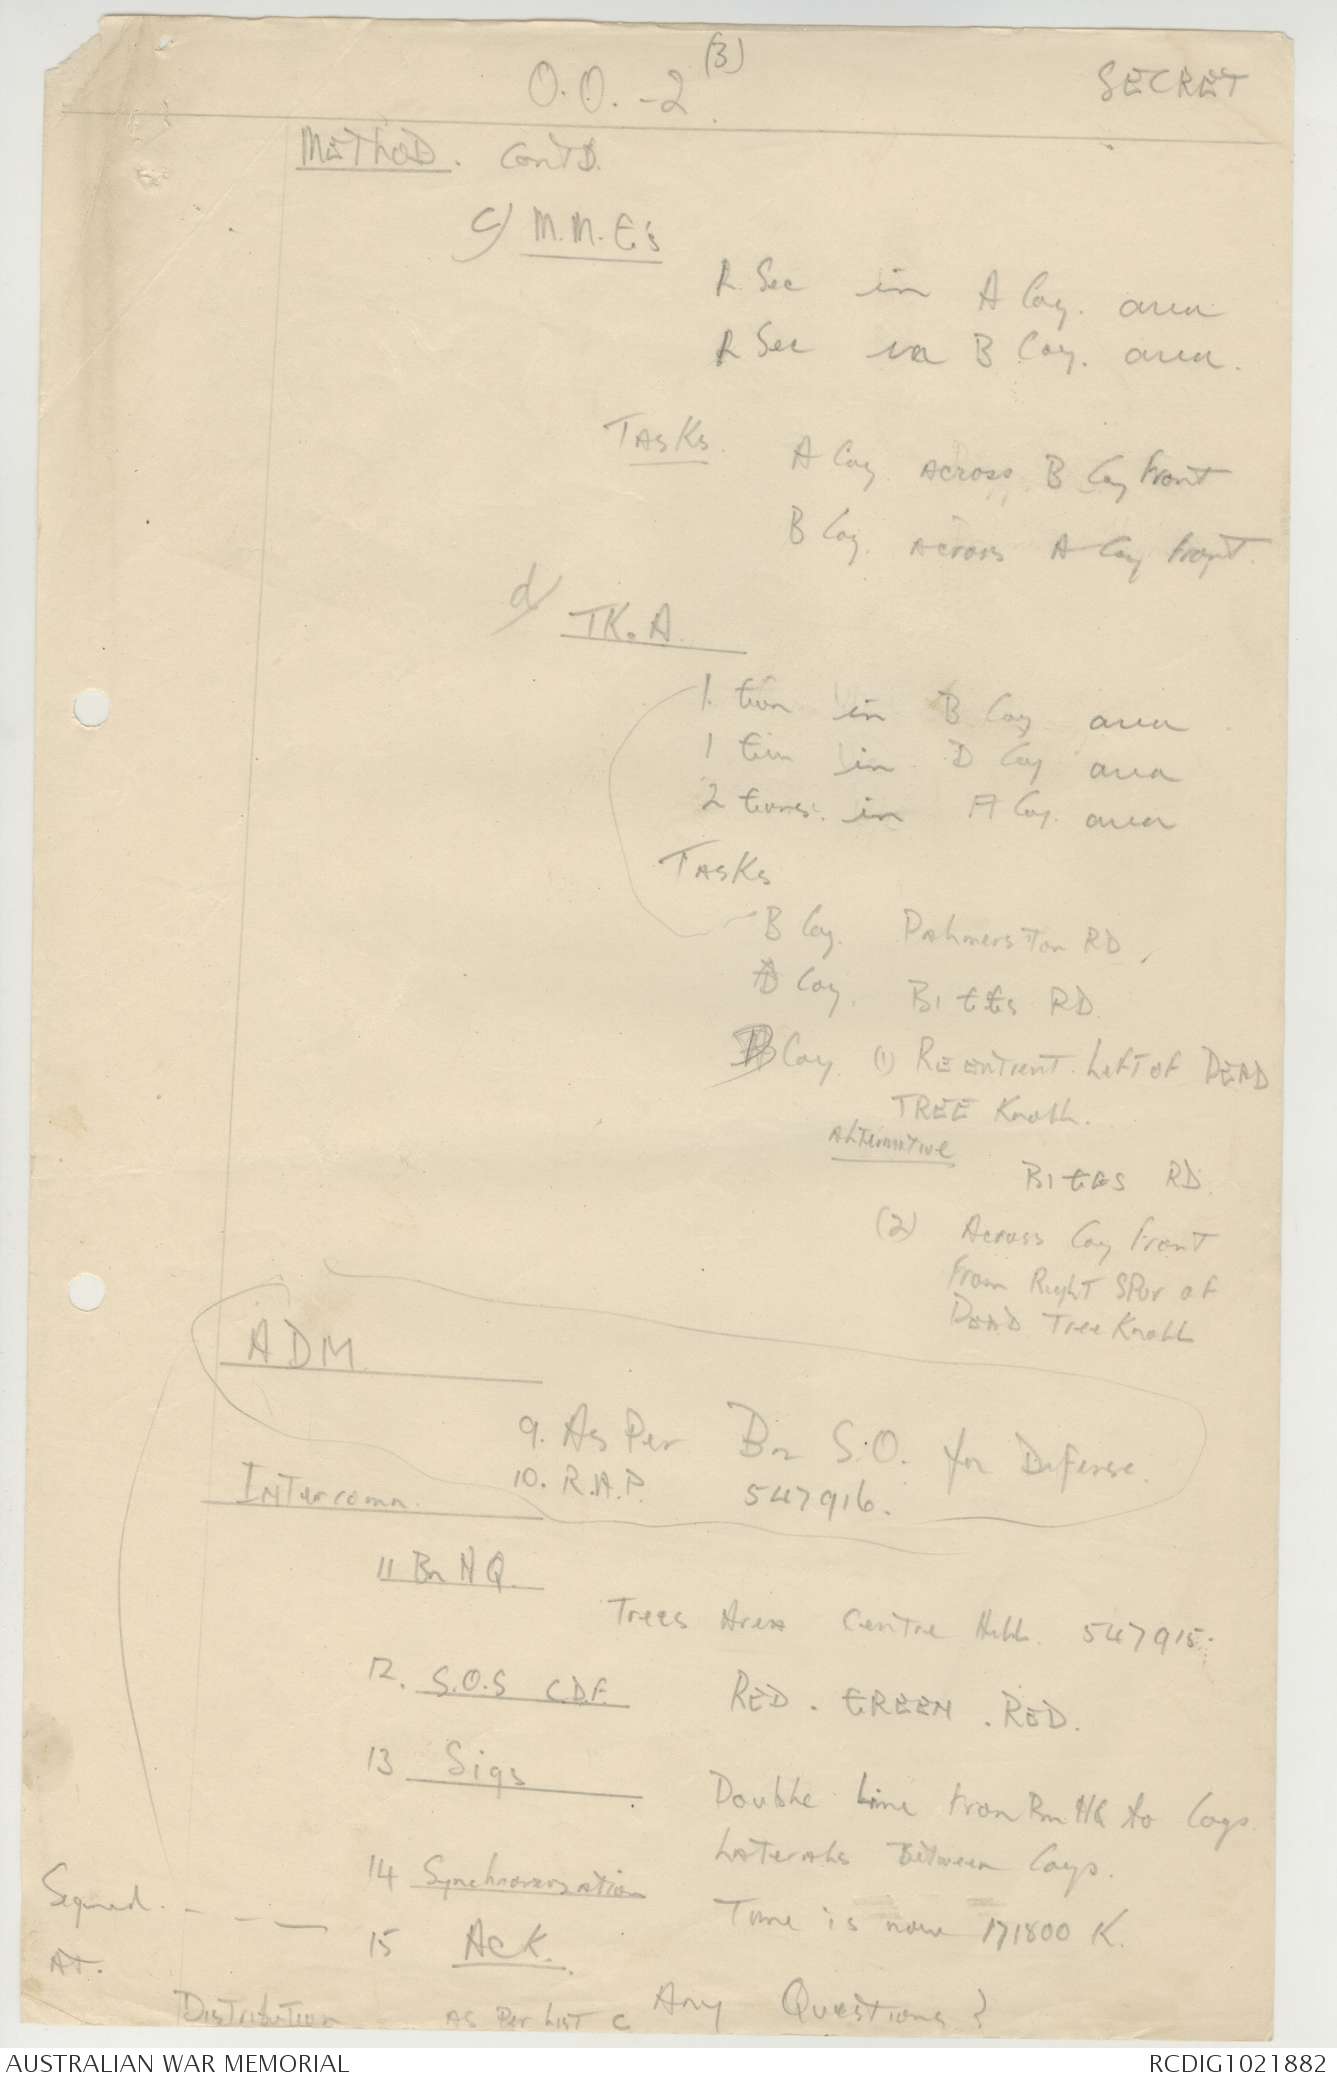 (3)
O.O. -2. SECRET
METHOD. CONTD.
c) M.M.G's
R Sec in A Coy. area
R Sec in B Coy. area.
TASKS. A Coy across B Coy Front
B Coy. across A Coy Front.
d) TK. A.
1 gun in B Coy area
1 gun in D Coy area
2 guns. in A Coy. area
TASKS
B Coy. Palmerston RD.
D Coy. Bitts RD.
Coy. (1) Reentrant Left of DEAD
TREE Knoll.
Alternative
RD.
(2) Across Coy Front
From Right Spur of
Dead Tree Knoll
ADM.
9. As Per Bn S.O. for Defense.
10. R.A.P. 547916.
Intercomn.
11 Bn H Q.
Trees Area Centre Hill. 547915.
12. S.O.S CDF RED. GREEN. RED.
13 Sigs Double Line from Bn HQ to Coys.
Laterals Between Coys.
14 Synchronisation Time is now 171800 K.
Signed. - - -
15 Ack.
AT.
Any Questions?
Distribution As Per List C
AUSTRALIAN WAR MEMORIAL RCDIG1021882